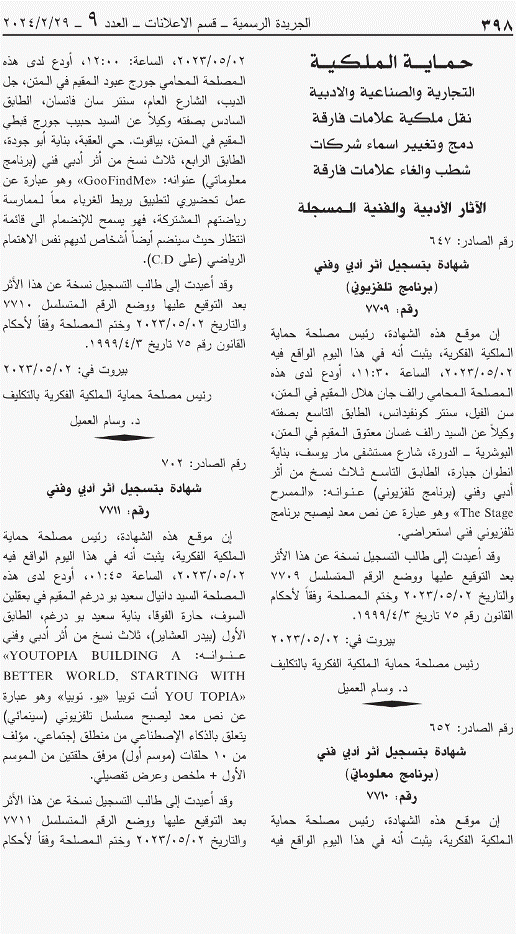 ٣٩٨
الجريدة الرسمية ــ قسم الاعلانات ــ العدد ٩ ــ ٢٠٢٤/٢/٢٩
حمـايـة الـملكيـة
التجارية والصناعية والادبية
نقل ملكية علامات فارقة
دمج وتغيير اسماء شركات
شطب والغاء علامات فارقة
الآثار الأدبية والفنية الـمسجلة
رقم الصادر: ٦٤٧
شهادة بتسجيل أثر أدبي وفني
(برنامج تلفزيوني)
رقم: ٧٧٠٩
إن موقع هذه الشهادة، رئيس مصلحة حماية
الـملكية الفكرية، يثبت أنه في هذا اليوم الواقع فيه
٢٠٢٣/٠٥/٠٢، الساعة ١١:٣٠، أودع لدى هذه
الـمصلحة الـمحامي رالف جان هلال الـمقيم في الـمتن،
سن الفيل، سنتر كونفيدانس، الطابق التاسع بصفته
وكيلاً عن السيد رالف غسان معتوق الـمقيم في الـمتن،
البوشرية – الدورة، شارع مستشفى مار يوسف، بناية
انطوان جبارة، الطابق التاسع ثلاث نسخ من أثر
أدبي وفني (برنامج تلفزيوني) عنوانه: «الـمسرح
The Stage» وهو عبارة عن نص معد ليصبح برنامج
تلفزيوني فني استعراضي.
وقد أعيدت إلى طالب التسجيل نسخة عن هذا الأثر
بعد التوقيع عليها ووضع الرقم الـمتسلسل ٧٧٠٩
والتاريخ ٢٠٢٣/٠٥/٠٢ وختم الـمصلحة وفقاً لأحكام
القانون رقم ٧٥ تاريخ ١٩٩٩/٤/٣.
بيروت في: ٢٠٢٣/٠٥/٠٢
رئيس مصلحة حماية الـملكية الفكرية بالتكليف
د. وسام العميل
رقم الصادر: ٦٥٢
شهادة بتسجيل أثر أدبي وفني
(برنامج معلوماتي)
رقم: ٧٧١٠
إن موقع هذه الشهادة، رئيس مصلحة حماية
الـملكية الفكرية، يثبت أنه في هذا اليوم الواقع فيه
٢٠٢٣/٠٥/٠٢، الساعة: ١٢:٠٠، أودع لدى هذه
الـمصلحة الـمحامي جورج عبود الـمقيم في الـمتن، جل
الديب، الشارع العام، سنتر سان فانسان، الطابق
السادس بصفته وكيلاً عن السيد حبيب جورج قبطي
الـمقيم في الـمتن، بياقوت. حي العقبة، بناية أبو جودة،
الطابق الرابع، ثلاث نسخ من أثر أدبي فني (برنامج
معلوماتي) عنوانه: «GooFindMe» وهو عبارة عن
عمل تحضيري لتطبيق يربط الغرباء معاً لـممارسة
رياضتهم الـمشتركة، فهو يسمح للإنضمام الى قائمة
انتظار حيث سينضم أيضاً أشخاص لديهم نفس الاهتمام
الرياضي (على C.D).
وقد أعيدت إلى طالب التسجيل نسخة عن هذا الأثر
بعد التوقيع عليها ووضع الرقم الـمتسلسل ٧٧١٠
والتاريخ ٢٠٢٣/٠٥/٠٢ وختم الـمصلحة وفقاً لأحكام
القانون رقم ٧٥ تاريخ ١٩٩٩/٤/٣.
بيروت في: ٢٠٢٣/٠٥/٠٢
رئيس مصلحة حماية الـملكية الفكرية بالتكليف
د. وسام العميل
رقم الصادر: ٧٠٢
شهادة بتسجيل أثر أدبي وفني
رقم: ٧٧١١
إن موقع هذه الشهادة، رئيس مصلحة حماية
الـملكية الفكرية، يثبت أنه في هذا اليوم الواقع فيه
٢٠٢٣/٠٥/٠٢، الساعة ٠١:٤٥، أودع لدى هذه
الـمصلحة السيد دانيال سعيد بو درغم الـمقيم في بعقلين
السوف، حارة الفوقا، بناية سعيد بو درغم، الطابق
الأول (بيدر العشاير)، ثلاث نسخ من أثر أدبي وفني
عنوانه: «YOUTOPIA BUILDING A
BETTER WORLD, STARTING WITH
YOU TOPIA» أنت توبيا «يو. توبيا» وهو عبارة
عن نص معد ليصبح مسلسل تلفزيوني (سينمائي)
يتعلق بالذكاء الإصطناعي من منطلق إجتماعي. مؤلف
من ١٠ حلقات (موسم أول) مرفق حلقتين من الـموسم
الأول + ملخص وعرض تفصيلي.
وقد أعيدت إلى طالب التسجيل نسخة عن هذا الأثر
بعد التوقيع عليها ووضع الرقم الـمتسلسل ٧٧١١
والتاريخ ٢٠٢٣/٠٥/٠٢ وختم الـمصلحة وفقاً لأحكام